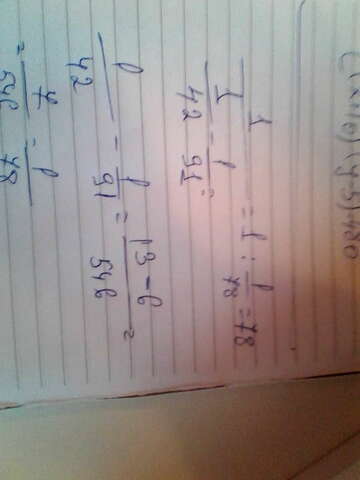 1/(1/42 - 1/91) = 1 : 1/78 = 78
1/42 - 1/91 = (13-6)/546 =
= 7/546 = 1/78